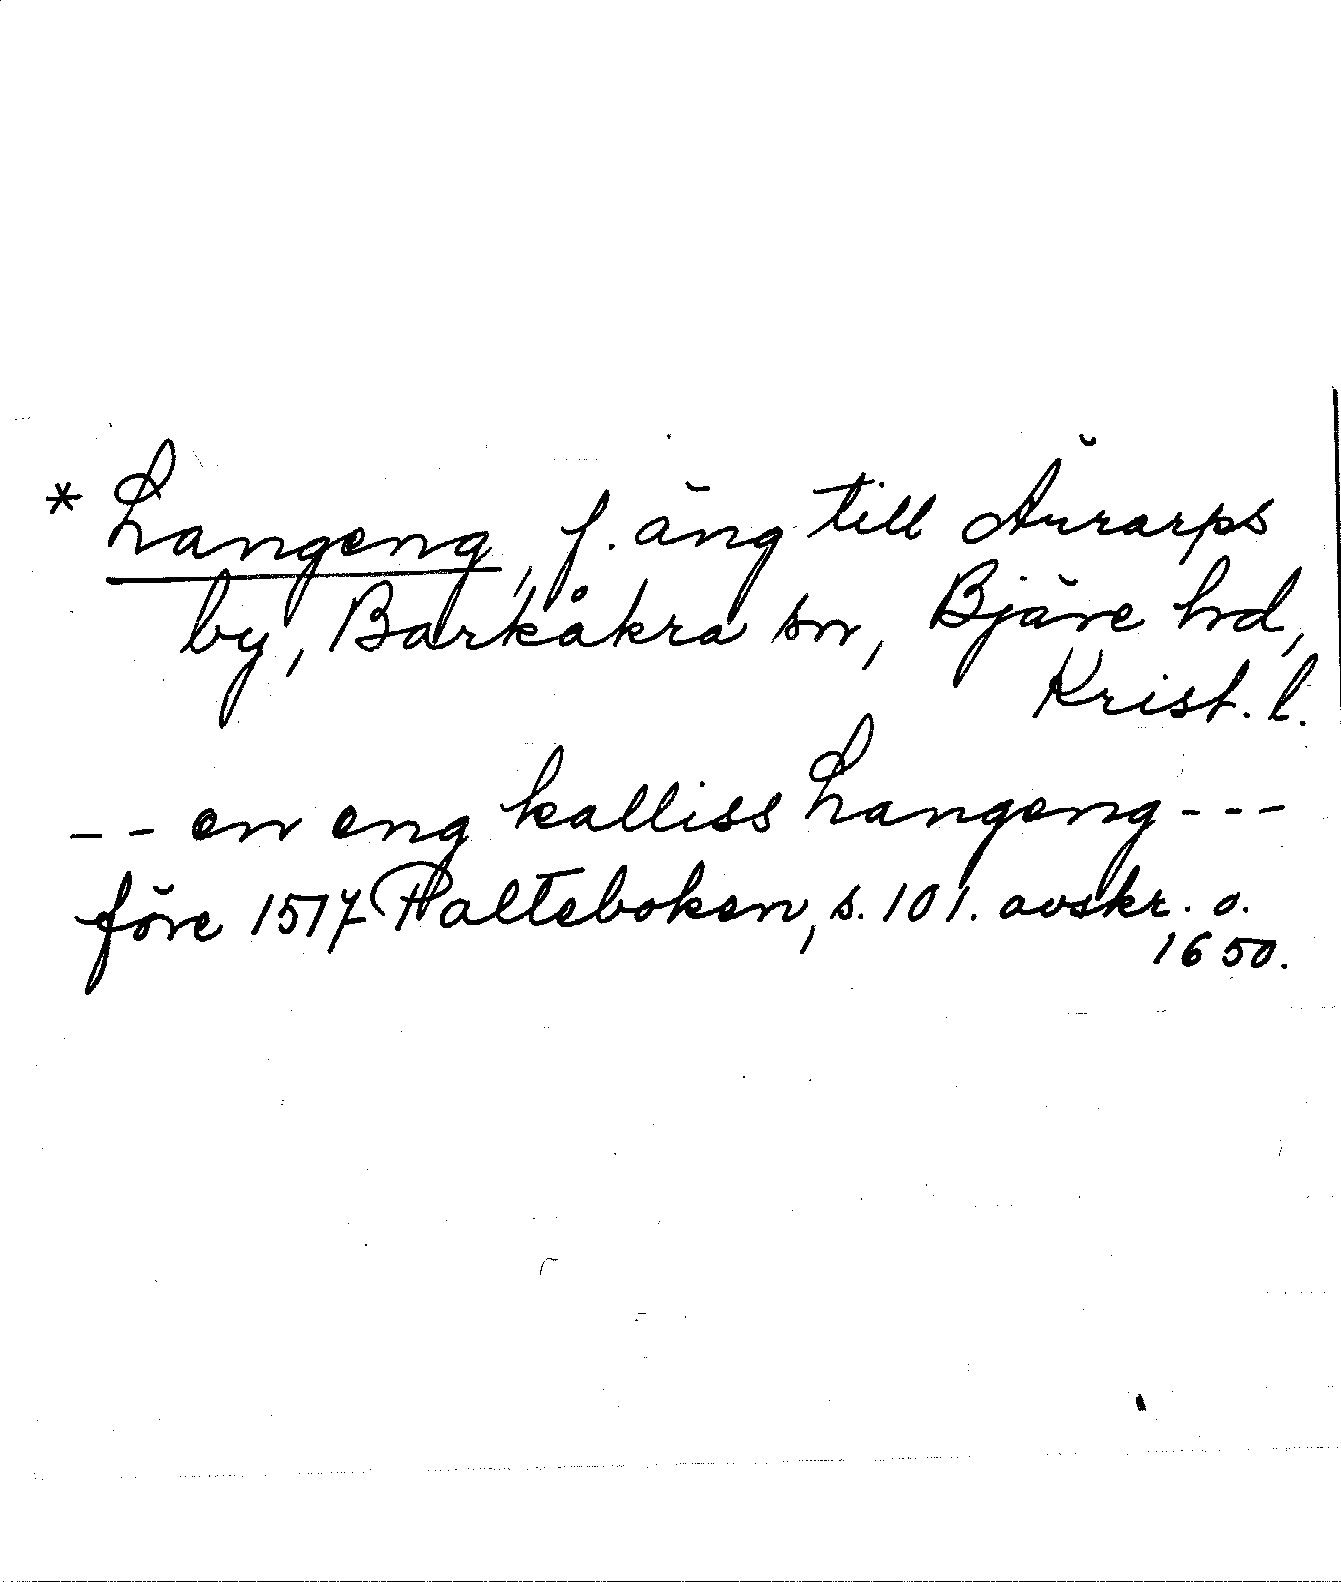 * Langeng, f. äng till Ärrarps
by, Barkåkra sn, Bjäre hd,
Krist. l.
-- en eng kalliss Langeng ---
före 1517 Palteboken, s. 101. avskr. o.
1650.